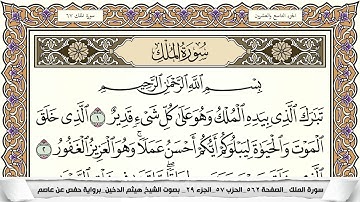 سورة الملك ٦٧
الجزء التاسع والعشرون
سُورَةُ المُلْكِ
بِسْمِ اللَّهِ الرَّحْمَٰنِ الرَّحِيمِ
تَبَٰرَكَ ٱلَّذِى بِيَدِهِ ٱلْمُلْكُ وَهُوَ عَلَىٰ كُلِّ شَىْءٍ قَدِيرٌ ١ ٱلَّذِى خَلَقَ
ٱلْمَوْتَ وَٱلْحَيَوٰةَ لِيَبْلُوَكُمْ أَيُّكُمْ أَحْسَنُ عَمَلًا ۚ وَهُوَ ٱلْعَزِيزُ ٱلْغَفُورُ ٢
سورة الملك _الصفحة ٥٦٢_الحزب ٥٧_الجزء ٢٩_ بصوت الشيخ هيثم الدخين_برواية حفص عن عاصم